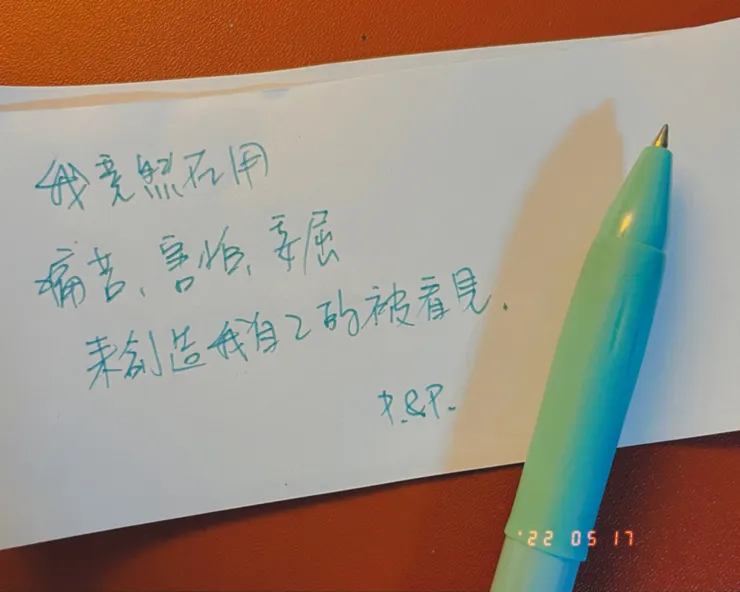 我竟然在用
痛苦、害怕、委屈
來創造我自己的被看見.
P.&P.
'22 05 17